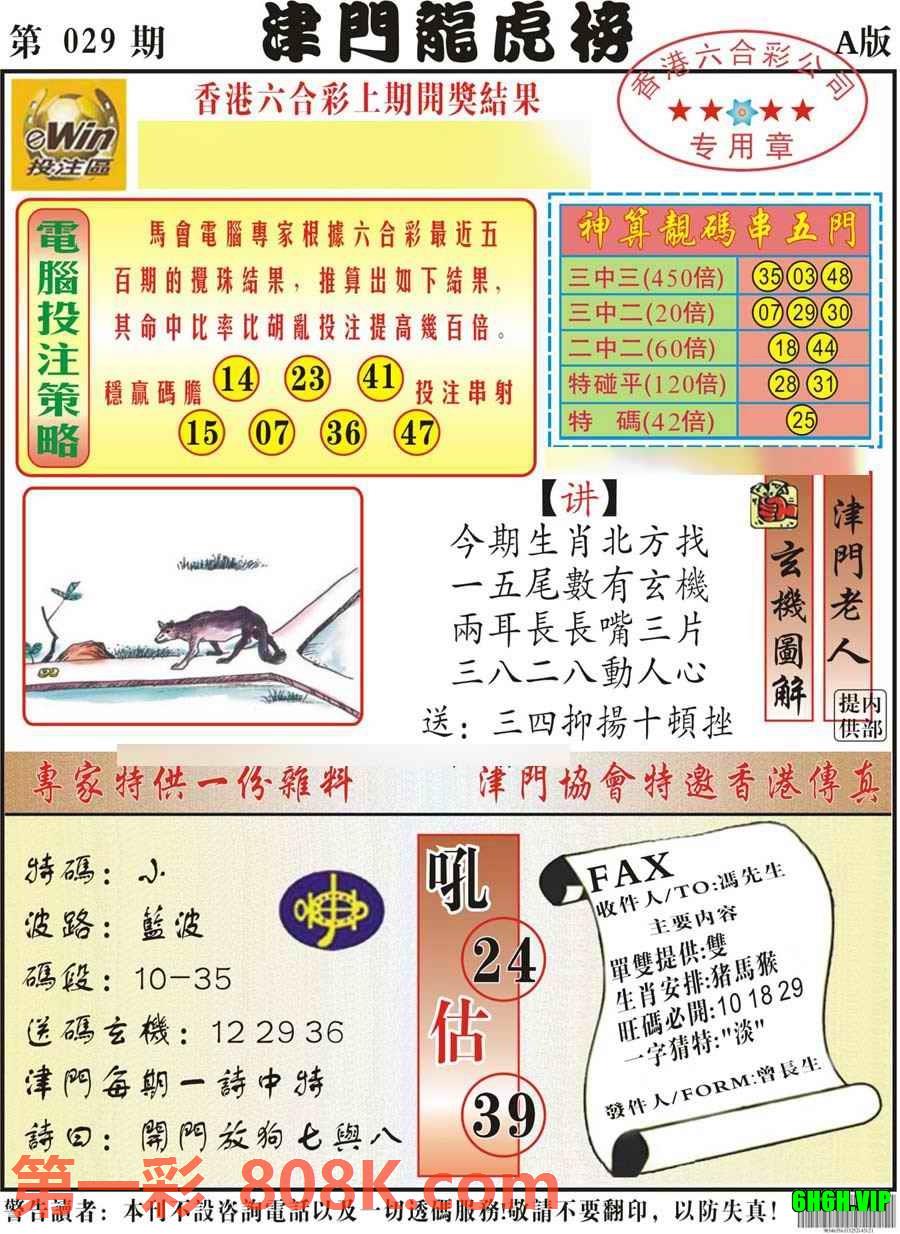 第 029 期
津門龍虎榜
A版
eWin
投注區
香港六合彩上期開獎結果
香港六合彩公司
专用章
電腦投注策略
馬會電腦專家根據六合彩最近五
百期的攪珠結果，推算出如下結果，
其命中比率比胡亂投注提高幾百倍。
穩贏碼膽 14 23 41 投注串射
15 07 36 47
神算靚碼串五門
三中三(450倍) 35 03 48
三中二(20倍) 07 29 30
二中二(60倍) 18 44
特碰平(120倍) 28 31
特 碼(42倍) 25
【讲】
今期生肖北方找
一五尾數有玄機
兩耳長長嘴三片
三八二八動人心
送：三四抑揚十頓挫
玄機圖解
津門老人
内部提供
專家特供一份雜料
津門協會特邀香港傳真
特碼：小
波路：藍波
碼段：10-35
送碼玄機：12 29 36
津門每期一詩中特
詩曰：開門放狗七與八
吼
24
估
39
FAX
收件人/TO:馮先生
主要内容
單雙提供:雙
生肖安排:猪馬猴
旺碼必開:10 18 29
一字猜特:"淡"
發件人/FORM:曾長生
第一彩 808K.com
警告讀者：本刊不設咨詢電話以及一切透碼服務!敬請不要翻印，以防失真！
6H6H.VIP